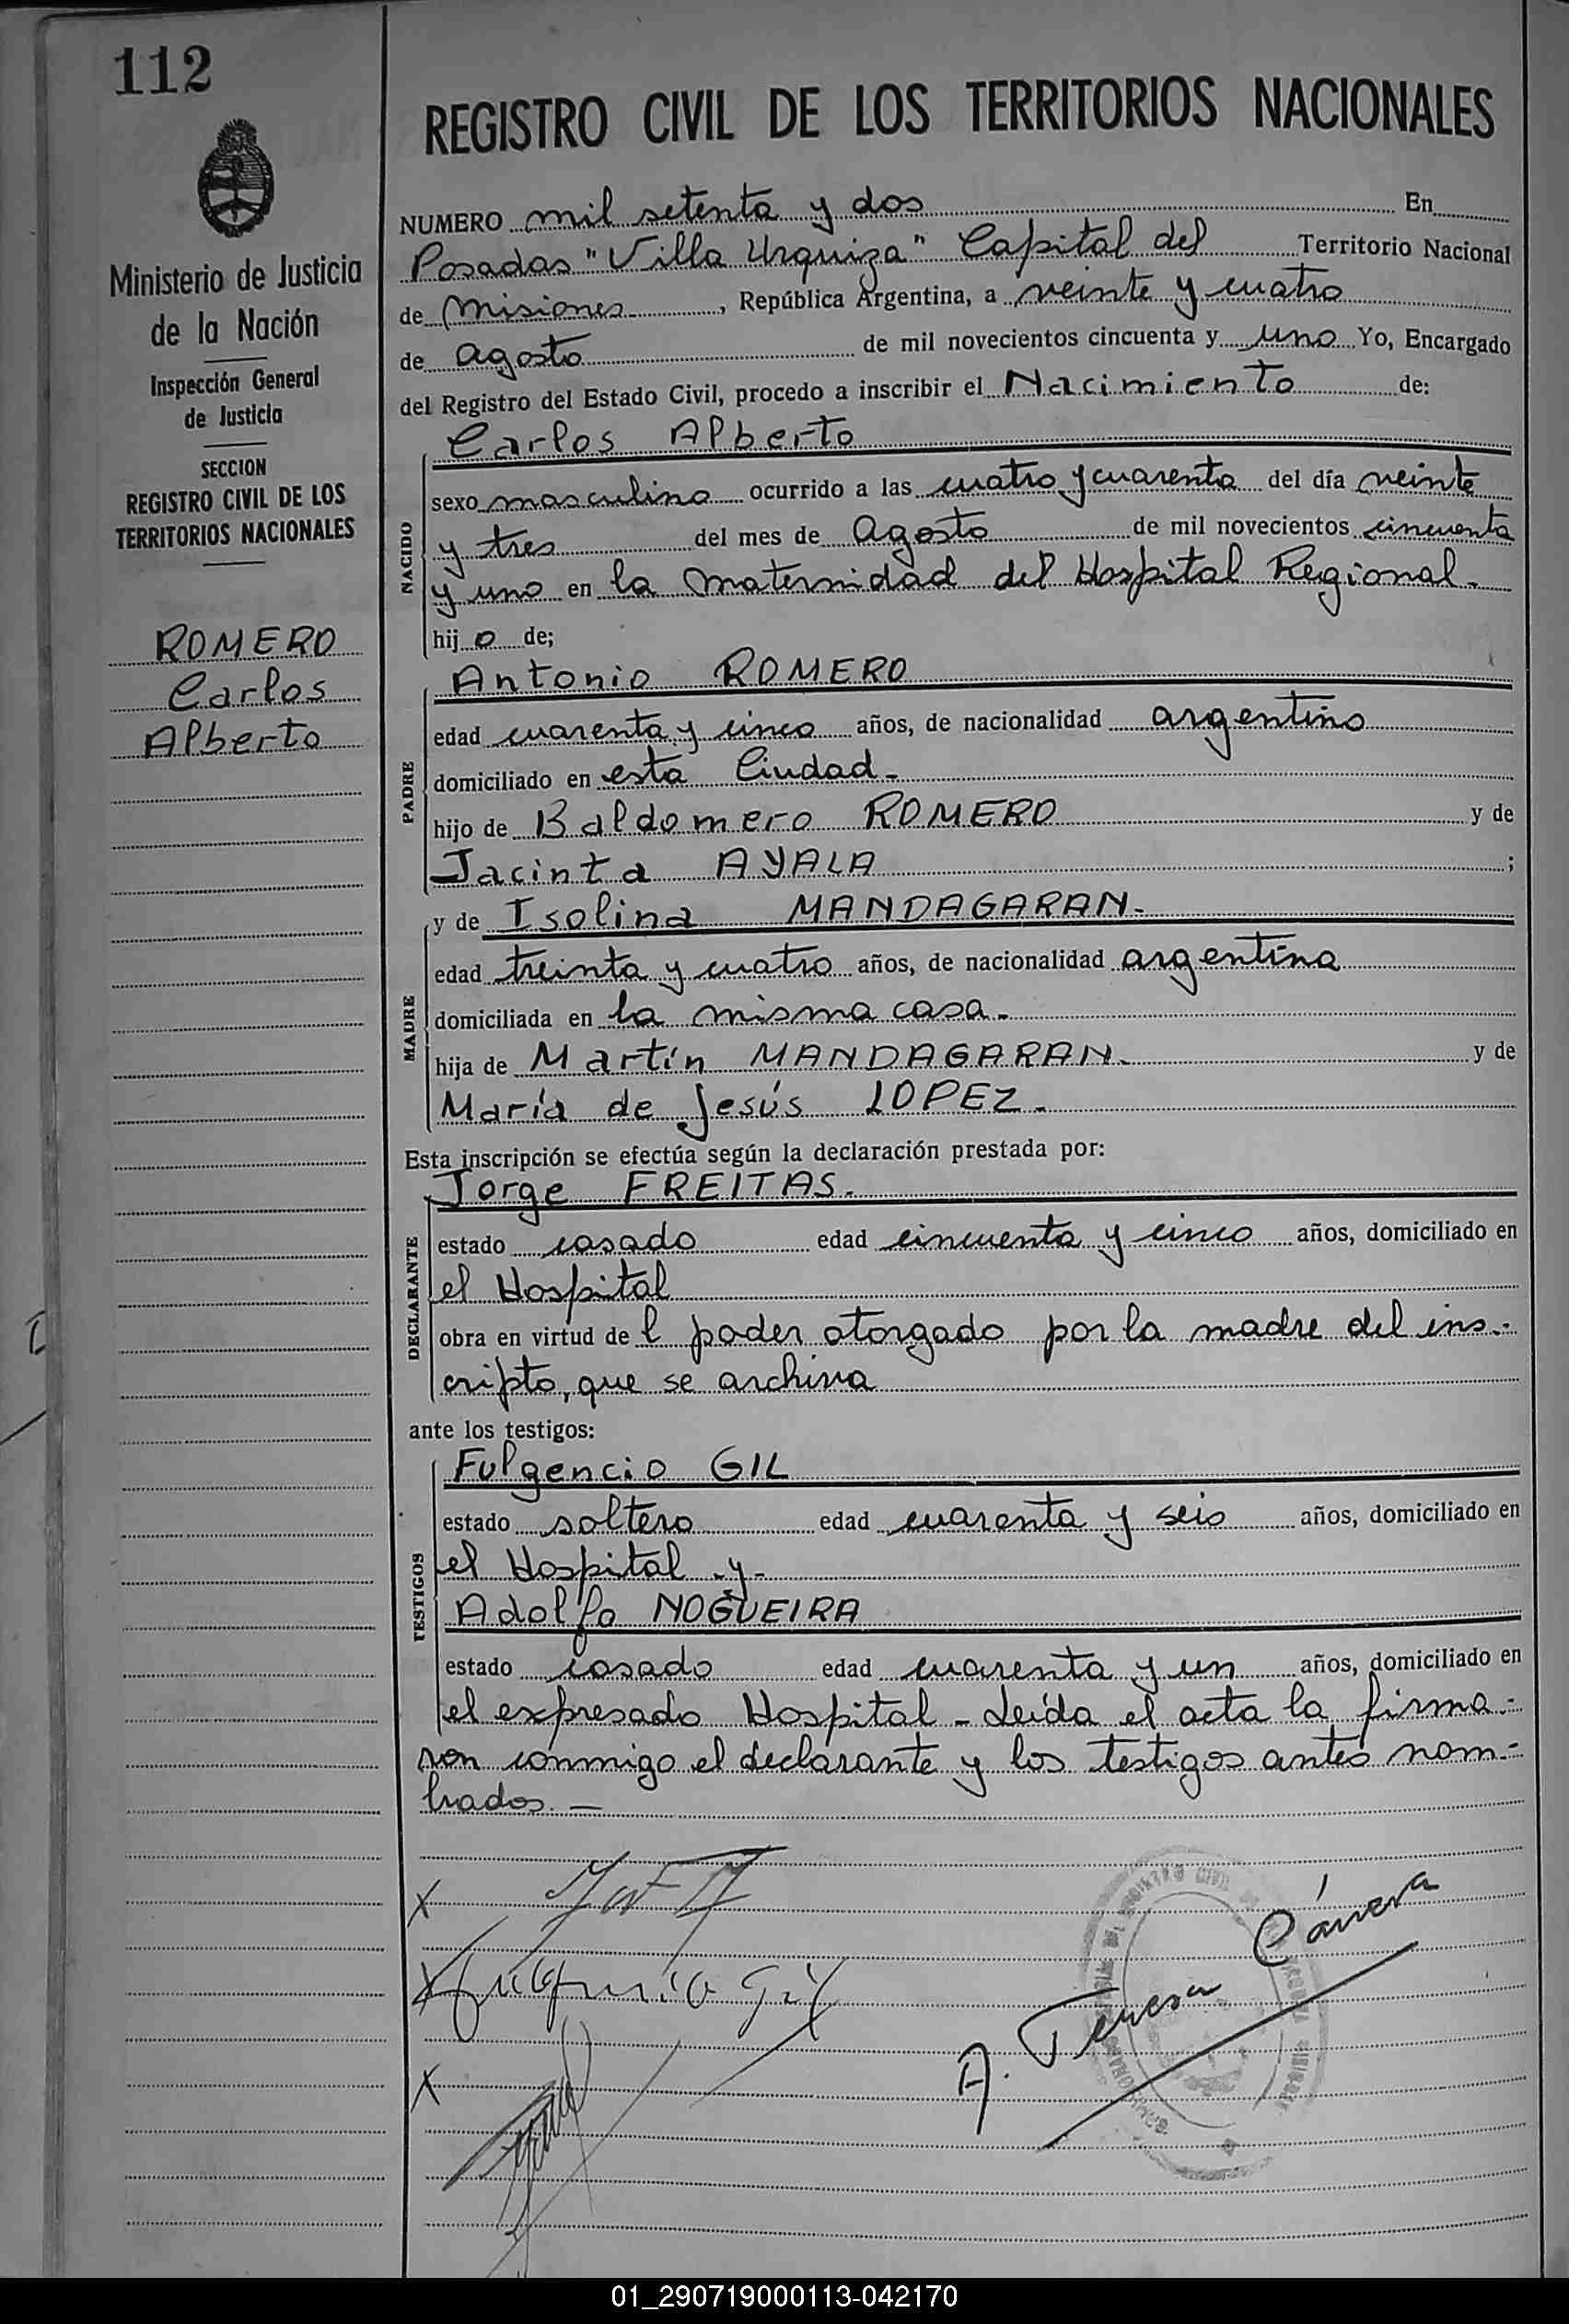 112
Ministerio de Justicia
de la Nación
Inspección General
de Justicia
SECCION
REGISTRO CIVIL DE LOS
TERRITORIOS NACIONALES
ROMERO
Carlos
Alberto
REGISTRO CIVIL DE LOS TERRITORIOS NACIONALES
NUMERO mil setenta y dos En
Posadas "Villa Urquiza" Capital del Territorio Nacional
de Misiones, República Argentina, a veinte y cuatro
de agosto de mil novecientos cincuenta y uno Yo, Encargado
del Registro del Estado Civil, procedo a inscribir el Nacimiento de:
Carlos Alberto
NACIDO
sexo masculino ocurrido a las cuatro y cuarenta del día veinte
y tres del mes de Agosto de mil novecientos cincuenta
y uno en la maternidad del Hospital Regional.
hijo de;
Antonio ROMERO
PADRE
edad cuarenta y cinco años, de nacionalidad argentino
domiciliado en esta Ciudad-
hijo de Baldomero ROMERO y de
Jacinta AYALA ;
y de Isolina MANDAGARAN-
MADRE
edad treinta y cuatro años, de nacionalidad argentina
domiciliada en la misma casa-
hija de Martín MANDAGARAN- y de
María de Jesús LOPEZ-
Esta inscripción se efectúa según la declaración prestada por:
Jorge FREITAS-
DECLARANTE
estado casado edad cincuenta y cinco años, domiciliado en
el Hospital
obra en virtud del poder otorgado por la madre del ins-
cripto, que se archiva
ante los testigos:
Fulgencio GIL
TESTIGOS
estado soltero edad cuarenta y seis años, domiciliado en
el Hospital -y-
Adolfo NOGUEIRA
estado casado edad cuarenta y un años, domiciliado en
el expresado Hospital - Leída el acta la firma-
ron conmigo el declarante y los testigos antes nom-
brados.-
Fulgencio Gil
A. Teresa Cánera
01_290719000113-042170